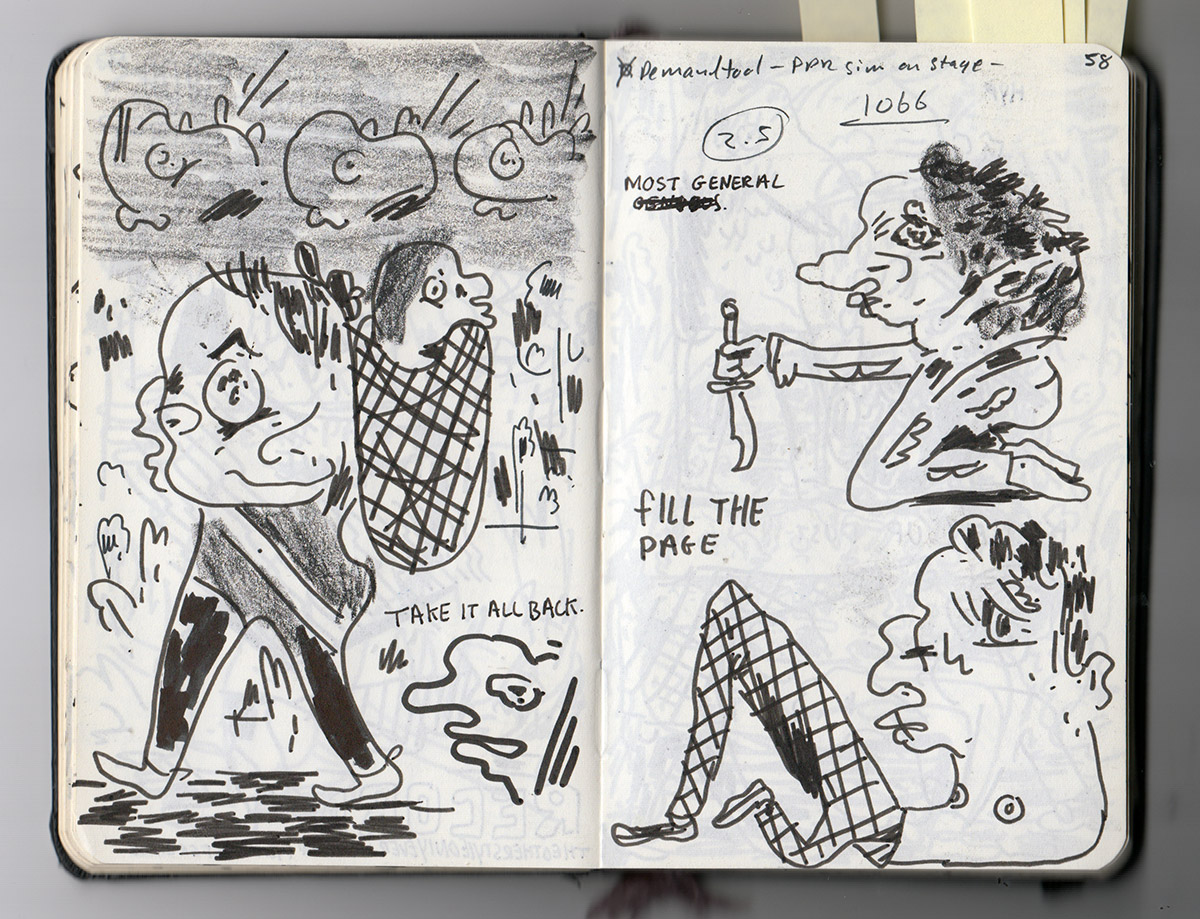 TAKE IT ALL BACK.
Demandtool - PPR sim on stage -
58
1066
2.5
MOST GENERAL
FILL THE
PAGE